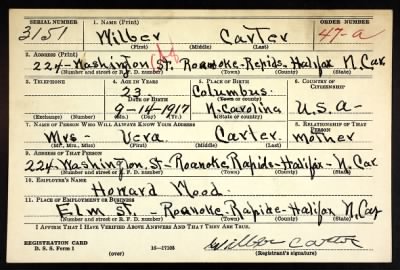 SERIAL NUMBER
1. NAME (Print)
ORDER NUMBER
3151
Wilber Carter
47-a
(First) (Middle) (Last)
2. ADDRESS (Print)
224-Washington St. Roanoke-Rapids-Halifax N.Car
(Number and street or R. F. D. number) (Town) (County) (State)
3. TELEPHONE
4. AGE IN YEARS
5. PLACE OF BIRTH
6. COUNTRY OF CITIZENSHIP
23
Columbus
(Town or county)
DATE OF BIRTH
9-14-1917
N.Carolina
U.S.A-
(Exchange) (Number)
(Mo.) (Day) (Yr.)
(State or country)
7. NAME OF PERSON WHO WILL ALWAYS KNOW YOUR ADDRESS
8. RELATIONSHIP OF THAT PERSON
Mrs- Vera Carter
mother
(Mr., Mrs., Miss) (First) (Middle) (Last)
9. ADDRESS OF THAT PERSON
224-Washington St-Roanoke Rapids-Halifax-N.Car
(Number and street or R. F. D. number) (Town) (County) (State)
10. EMPLOYER'S NAME
Howard Wood
11. PLACE OF EMPLOYMENT OR BUSINESS
Elm St. - Roanoke Rapids-Halifax N.Car
(Number and street or R. F. D. number) (Town) (County) (State)
I AFFIRM THAT I HAVE VERIFIED ABOVE ANSWERS AND THAT THEY ARE TRUE.
REGISTRATION CARD
D. S. S. Form 1
16-17105
Wilber Carter
(Registrant's signature)